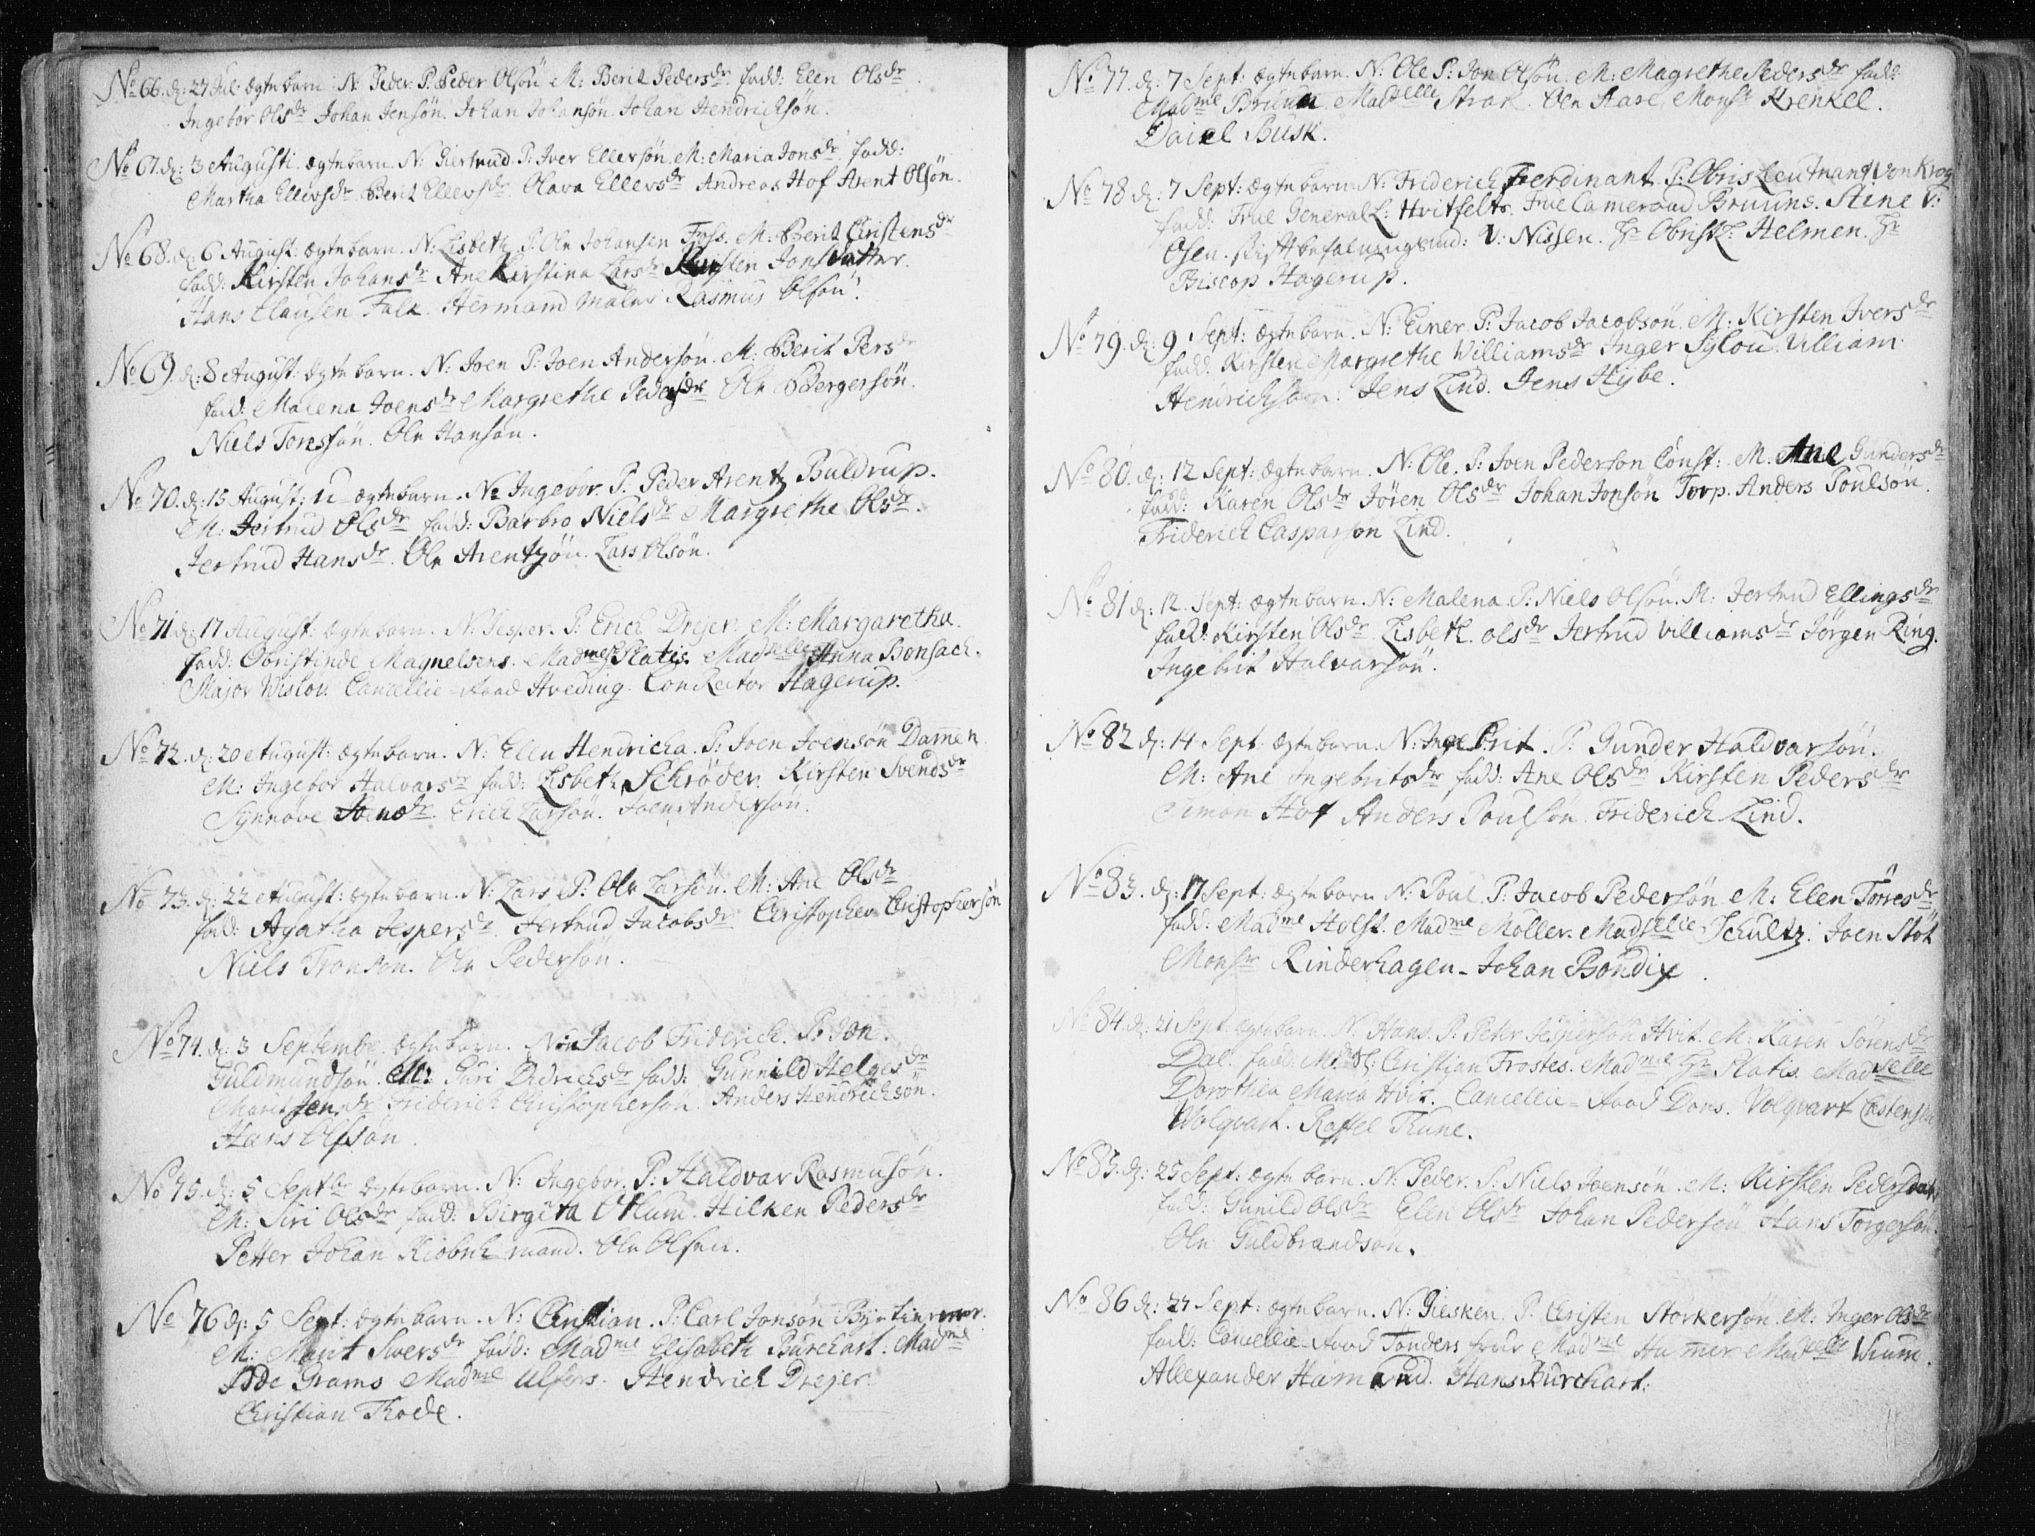 No 66. d: 27 Jul: ægte barn N: Peder P: Peder Olsön M: Berit Pedersdr fadd: Elen Olsdr
Ingebor Olsdr Johan Jensön. Johan Johansön. Johan Hendrichsön.
No 67. d: 3 Augusti. ægte barn. N: Giertrud. P: Iver Ellersön. M: Maria Jonsdr fadd:
Martha Ellersdr Berit Ellersdr Olava Ellersdr Andreas Hof Arent Olsön.
No 68. d: 6 August: ægte barn. N: Lisbeth P: Ole Johansen Foss. M: Berit Christensdr
fadd: Kirsten Johansdr Ane Kirstina Larsdr Kirsten Jonsdatter.
Hans Clausen Falk. Hermand Maler Rasmus Olsön.
No 69. d: 8 August: ægte barn. N: Joen P: Joen Andersön. M: Berit Persdr
fadd: Malena Joensdr Margrethe Pedersdr Ole Bergersön.
Niels Tonessön. Ole Hansön.
No 70. d: 15 August: u ægte barn. N: Ingebor. P: Peder Arentz Buldrup.
M: Jertrud Olsdr fadd: Barbro Nielsdr Margrethe Olsdr.
Jertrud Hansdr. Ole Arentzön. Lars Olsön.
No 71. d: 17 August: ægte barn. N: Jesper. P: Erich Drejer. M: Margaretha.
fadd: Obristinde Magnelsens. Madme Platis. Madselle Anna Bonsach.
Major Wislov. Cancellie-Raad Hveding. ConRector Hagerup.
No 72. d: 20 August: ægte barn. N: Elen Hendricha. P: Joen Joensön Damen
M: Ingebor Halvarsdr fadd: Lisbeth Schrøder. Kirsten Svendsdr
Synnove Joensdr. Erich Larsön. Joen Andersön.
No 73. d: 22 August: ægte barn. N: Lars P: Ole Larsön. M: Ane Olsdr
fad: Agatha Jespersdr Jertrud Jacobsdr Christopher Christophersön
Niels Tronson. Ole Pedersön.
No 74. d: 3 Septembr ægte barn. N: Jacob Friderich. P: Jon
Guldmundsön. M: Guri Didrichsdr fadd: Gunnild Helgesdr
Marit Jensdr Friderich Christophersön. Anders Hendrichsön.
Hans Olsön.
No 75. d: 5 Septbr ægte barn. N: Ingebor. P: Haldvar Rasmusön.
M: Siri Olsdr fadd: Birgita Blum. Hilken Pedersdr
Petter Johan Kiobnh-mand. Ole Olsen.
No 76 d: 5 Sept: ægte barn. N: Christian. P: Carl Jonsön
M: Marit Iversdr fadd: Madme Elisabeth Burchart. Madme
Grams Madme Ulfers. Hendrich Drejer.
Christian Thode.
No 77. d: 7 Sept: ægte barn. N: Ole P: Jon Olsön. M: Magrethe Pedersdr fadd:
Madme Bruun Madselle Strax. Ole Aare. Monsr Krenkel.
Daiel Busk.
No 78 d: 7 Sept: ægte barn N: Friderich Ferdinant. P: Obrist Leutnant von Krog
fadd: Frue Generall: Hvitfelts. Frue Cameraad Bruuns. Stine V:
Osen. Stiftbefalningsmd: V: Nissen. Hr Obristl: Helmen. Hr
Biscop Hagerup.
No 79. d: 9 Sept: ægte barn. N: Einer P: Jacob Jacobsön. M: Kirsten Iversdr
fadd: Kirsten Margrethe Williamsdr Inger Sylou. Villiam
Hendrichsön. Jens Lind. Jens Hybe.
No 80. d: 12 Sept: ægte barn. N: Ole. P: Joen Pederson Const: M: Ane Gundersdr
fadd: Karen Olsdr Jören Olsdr Johan Jonsön Torp. Anders Poulsön.
Friderich Casparson Lind.
No 81 d: 12. Sept: ægte barn. N: Malena. P: Niels Olsön. M: Jertrud Ellingsdr
fadd: Kirsten Olsdr Lisbeth. olsdr Jertrud Villiamsdr Jörgen Ring.
Ingebrit Halvarsön.
No 82 d: 14 Sept ægte barn. N: Ingebrit. P: Gunder Haldvarsön.
M: Ane Ingebritsdr fadd: Ane Olsdr Kirsten Pedersdr
Simon Hof Anders Poulsön. Friderich Lind.
No 83. d: 17 Sept: ægte barn N: Poul P: Jacob Pedersön. M: Elen Tørresdr
fadd: Madme Holst. Madme Møller. Madselle Schultz. Joen Stöt
Monsr Rinderhagen. Johan Bondix.
No 84. d: 21 Sept ægte barn. N: Hans. P: Peter Jespersön Hvit. M: Karen Sörensdr
Dal. fadd: Mad: Christian Frostes. Madme Platis. Madselle
Dorothea Maria Hvit. Cancellie-Raad Dons. Volqvart Castensen
Wolqvart. Raffel Thune.
No 85. d: 25 Sept: ægte barn. N: Peder. P: Niels Joensön. M: Kirsten Pedersdatr
fadd: Gunild Olsdr Elen Olsdr Johan Pedersön Hans Torgersön.
Ole Guldbrandsön.
No 86 d: 27 Sept: ægte barn. N: Giesken. P: Christen Storkersön. M: Inger Olsdr
fadd: Cancellie Raad Tönders frue Madme Hammer Madselle Wium.
Allexander Hamond. Hans Burchart.